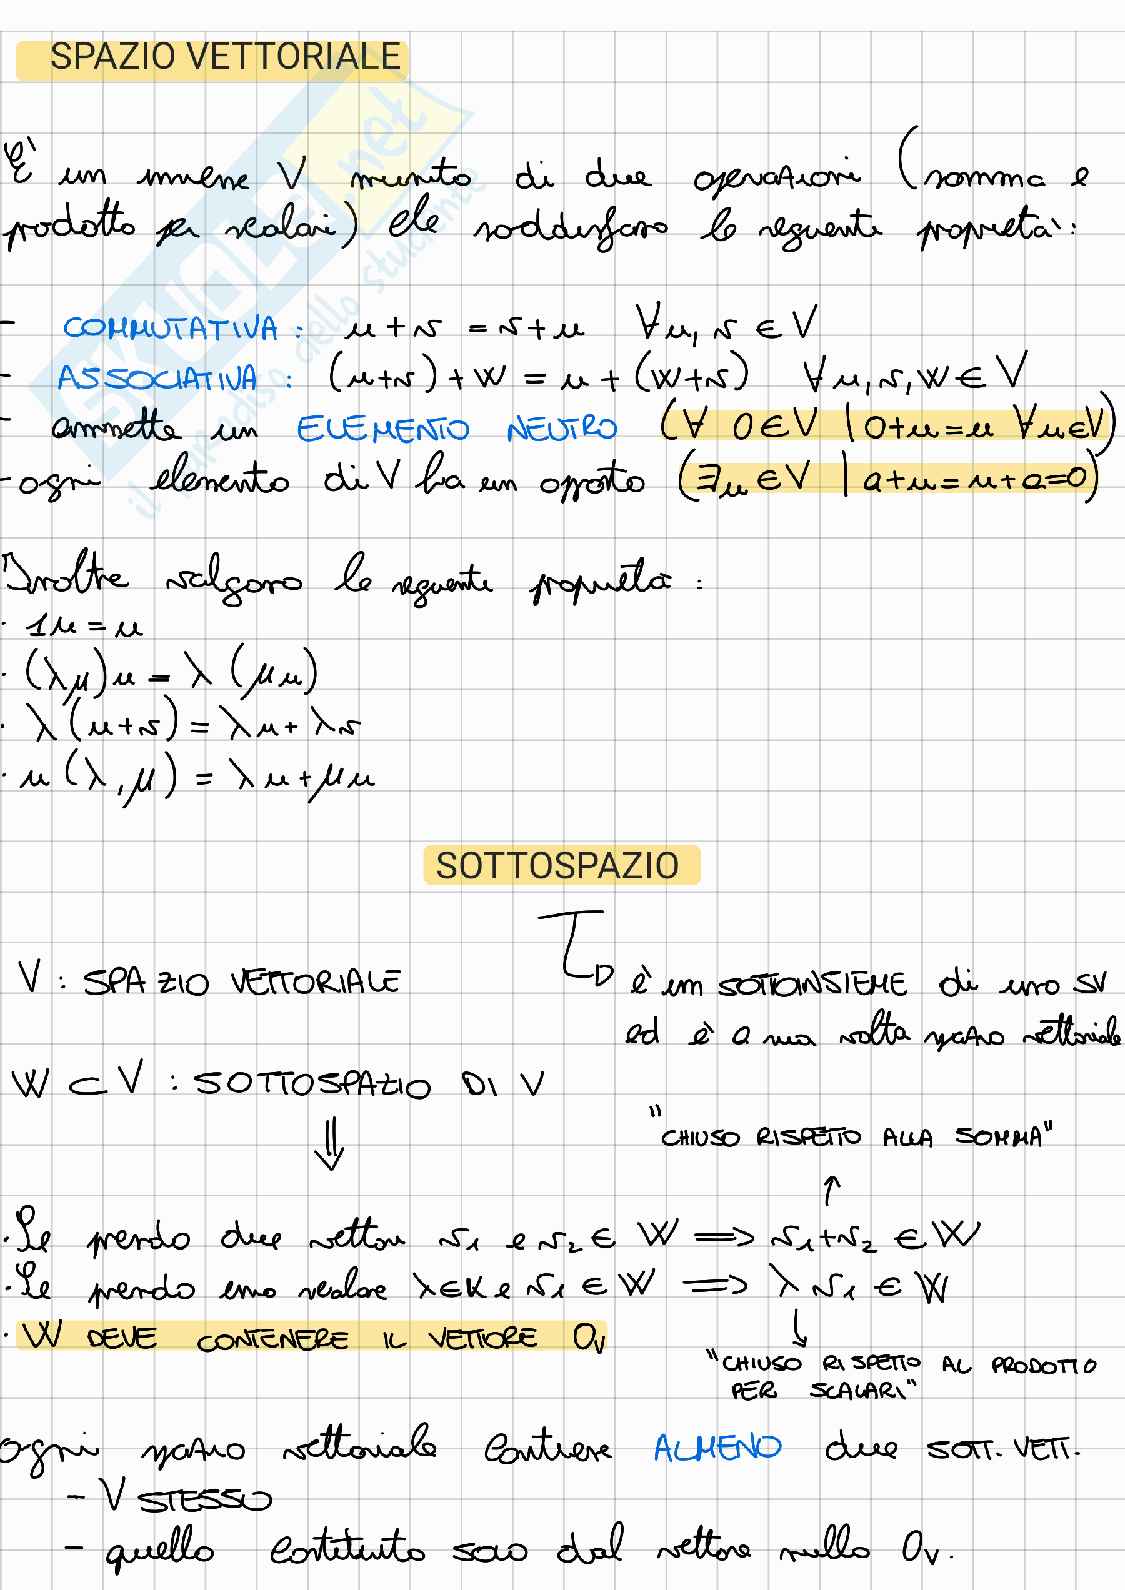 SPAZIO VETTORIALE
È un insieme V munito di due operazioni (somma e
prodotto per scalari) che soddisfano le seguenti proprietà:
- COMMUTATIVA: u+v = v+u ∀u, v ∈ V
- ASSOCIATIVA: (u+v)+W = u+(W+v) ∀u,v,W ∈ V
- ammette un ELEMENTO NEUTRO (∀ 0∈V | 0+u=u ∀u∈V)
- ogni elemento di V ha un opposto (∃u ∈ V | a+u=u+a=0)
Inoltre valgono le seguenti proprietà:
· 1u = u
· (λμ)u = λ(μu)
· λ(u+v) = λu + λv
· u(λ,μ) = λu + μu
SOTTOSPAZIO
V: SPAZIO VETTORIALE
è un SOTTOINSIEME di uno SV
ed è a sua volta spazio vettoriale
W ⊂ V : SOTTOSPAZIO DI V
⇓
"CHIUSO RISPETTO ALLA SOMMA"
↑
· Se prendo due vettori v₁ e v₂ ∈ W ⟹ v₁+v₂ ∈ W
· Se prendo uno scalare λ∈K e v₁ ∈ W ⟹ λv₁ ∈ W
· W DEVE CONTENERE IL VETTORE 0ᵥ
↓
"CHIUSO RISPETTO AL PRODOTTO
PER SCALARI"
ogni spazio vettoriale contiene ALMENO due SOTT. VETT.
- V STESSO
- quello costituito solo dal vettore nullo 0ᵥ.
SKUOLA.net
il paradiso dello studente